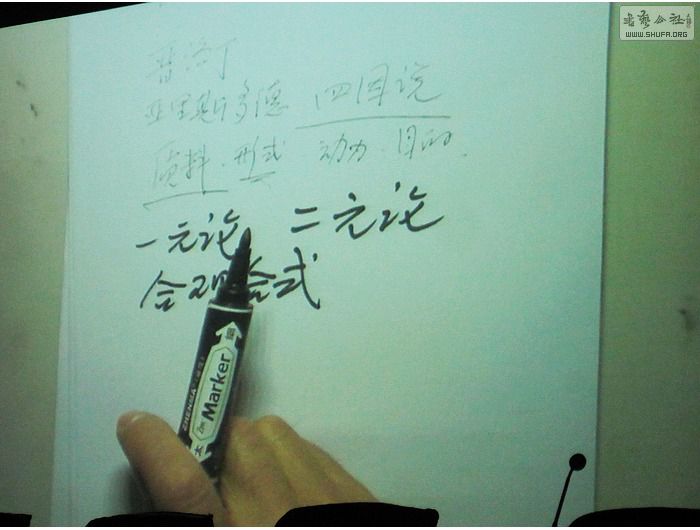 普洛丁
亚里斯多德 四因说
质料、形式 动力、目的
一元论 二元论
合理合式
Marker
ZHENMA
书艺公社
WWW.SHUFA.ORG